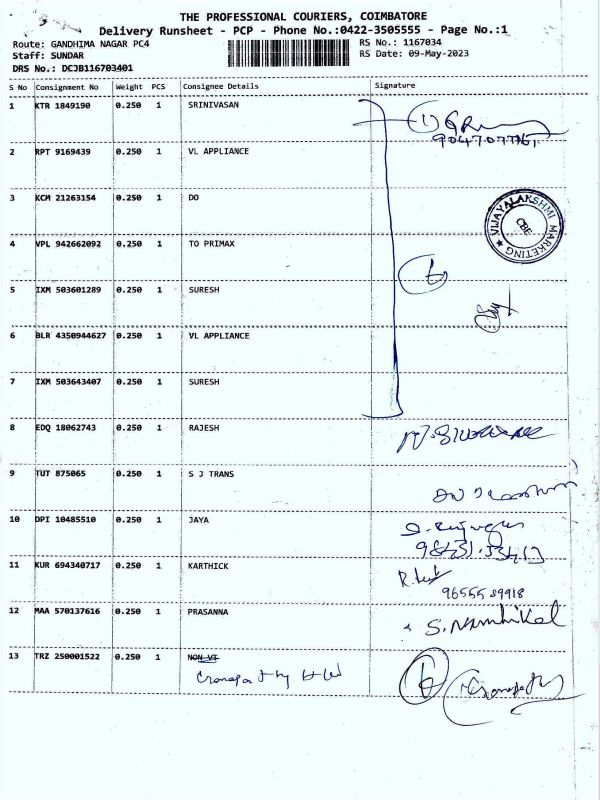 THE PROFESSIONAL COURIERS, COIMBATORE
Delivery Runsheet - PCP - Phone No.:0422-3505555 - Page No.:1
Route: GANDHIMA NAGAR PC4
RS No.: 1167034
Staff: SUNDAR
RS Date: 09-May-2023
DRS No.: DCJB116703401
S No Consignment No Weight PCS Consignee Details Signature
1 KTR 1849190 0.250 1 SRINIVASAN
2 RPT 9169439 0.250 1 VL APPLIANCE
3 KCM 21263154 0.250 1 DO
VIJAYALAKSHMI MARKETING
CBE
4 VPL 942662092 0.250 1 TO PRIMAX
5 IXM 503601289 0.250 1 SURESH
6 BLR 4350944627 0.250 1 VL APPLIANCE
7 IXM 503643407 0.250 1 SURESH
8 EDQ 18062743 0.250 1 RAJESH
9 TUT 875065 0.250 1 S J TRANS
10 DPI 10485510 0.250 1 JAYA
11 KUR 694340717 0.250 1 KARTHICK
96555 89918
12 MAA 570137616 0.250 1 PRASANNA
13 TRZ 250001522 0.250 1 NON VT